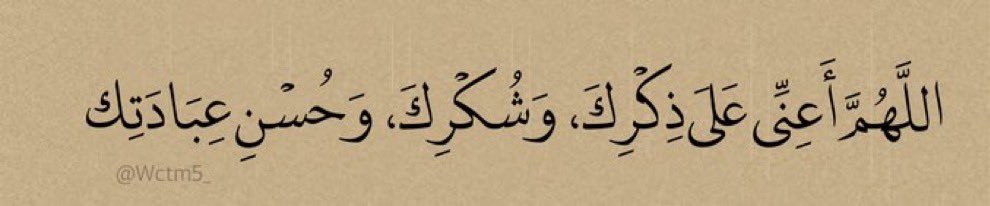 اللَّهُمَّ أَعِنِّي عَلَى ذِكْرِكَ، وَشُكْرِكَ، وَحُسْنِ عِبَادَتِك
@Wctm5_